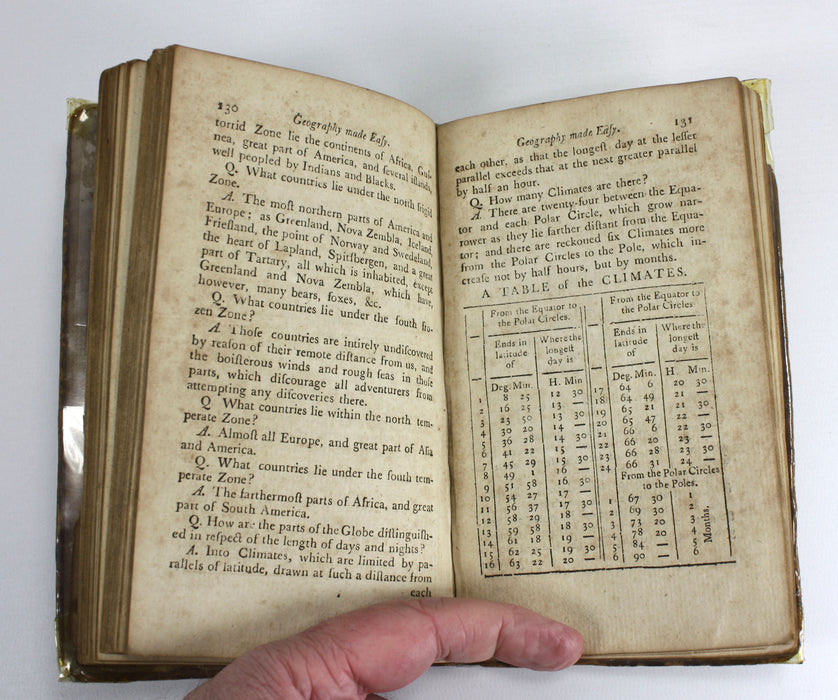 130
Geography made Eaſy.
torrid Zone lie the continents of Africa, Gui-
nea, great part of America, and ſeveral iſlands,
well peopled by Indians and Blacks.
Q. What countries lie under the north frigid
Zone.
A. The moſt northern parts of America and
Europe; as Greenland, Nova Zembla, Iceland,
Frieſland, the point of Norway and Swedeland,
the heart of Lapland, Spitſbergen, and a great
part of Tartary, all which is inhabited, except
Greenland and Nova Zembla, which have,
however, many bears, foxes, &c.
Q. What countries lie under the ſouth fro-
zen Zone?
A. Thoſe countries are intirely undiſcovered
by reaſon of their remote diſtance from us, and
the boiſterous winds and rough ſeas in thoſe
parts, which diſcourage all adventurers from
attempting any diſcoveries there.
Q. What countries lie within the north tem-
perate Zone?
A. Almoſt all Europe, and great part of Aſia
and America.
Q. What countries lie under the ſouth tem-
perate Zone?
A. The fartheſt parts of Africa, and great
part of South America.
Q. How are the parts of the Globe diſtinguiſh-
ed in reſpect of the length of days and nights?
A. Into Climates, which are limited by pa-
rallels of latitude, drawn at ſuch a diſtance from
each
Geography made Eaſy.
131
each other, as that the longeſt day at the leſſer
parallel exceeds that at the next greater parallel
by half an hour.
Q. How many Climates are there?
A. There are twenty-four between the Equa-
tor and each Polar Circle, which grow nar-
rower as they lie farther diſtant from the Equa-
tor; and there are reckoned ſix Climates more
from the Polar Circles to the Pole, which in-
creaſe not by half hours, but by months.
A TABLE of the CLIMATES.
From the Equator to
the Polar Circles.
Ends in
latitude
of
Where the
longeſt
day is
Deg. Min. H. Min
1 8 25 12 30
2 16 25 13 —
3 23 50 13 30
4 30 20 14 —
5 36 28 14 30
6 41 22 15 —
7 45 29 15 30
8 49 1 16 —
9 51 58 16 30
10 54 27 17 —
11 56 37 17 30
12 58 29 18 —
13 59 58 18 30
14 61 18 19 —
15 62 25 19 30
16 63 22 20 —
From the Equator to
the Polar Circles
Ends in
latitude
of
Where the
longeſt
day is
Deg. Min. H. Min.
17 64 6 20 30
18 64 49 21 —
19 65 21 21 30
20 65 47 22 —
21 66 6 22 30
22 66 20 23 —
23 66 28 23 30
24 66 31 24 —
From the Polar Circles
to the Poles.
1 67 30 1
2 69 30 2
3 73 20 3
4 78 20 4
5 84 — 5
6 90 — 6
Months.